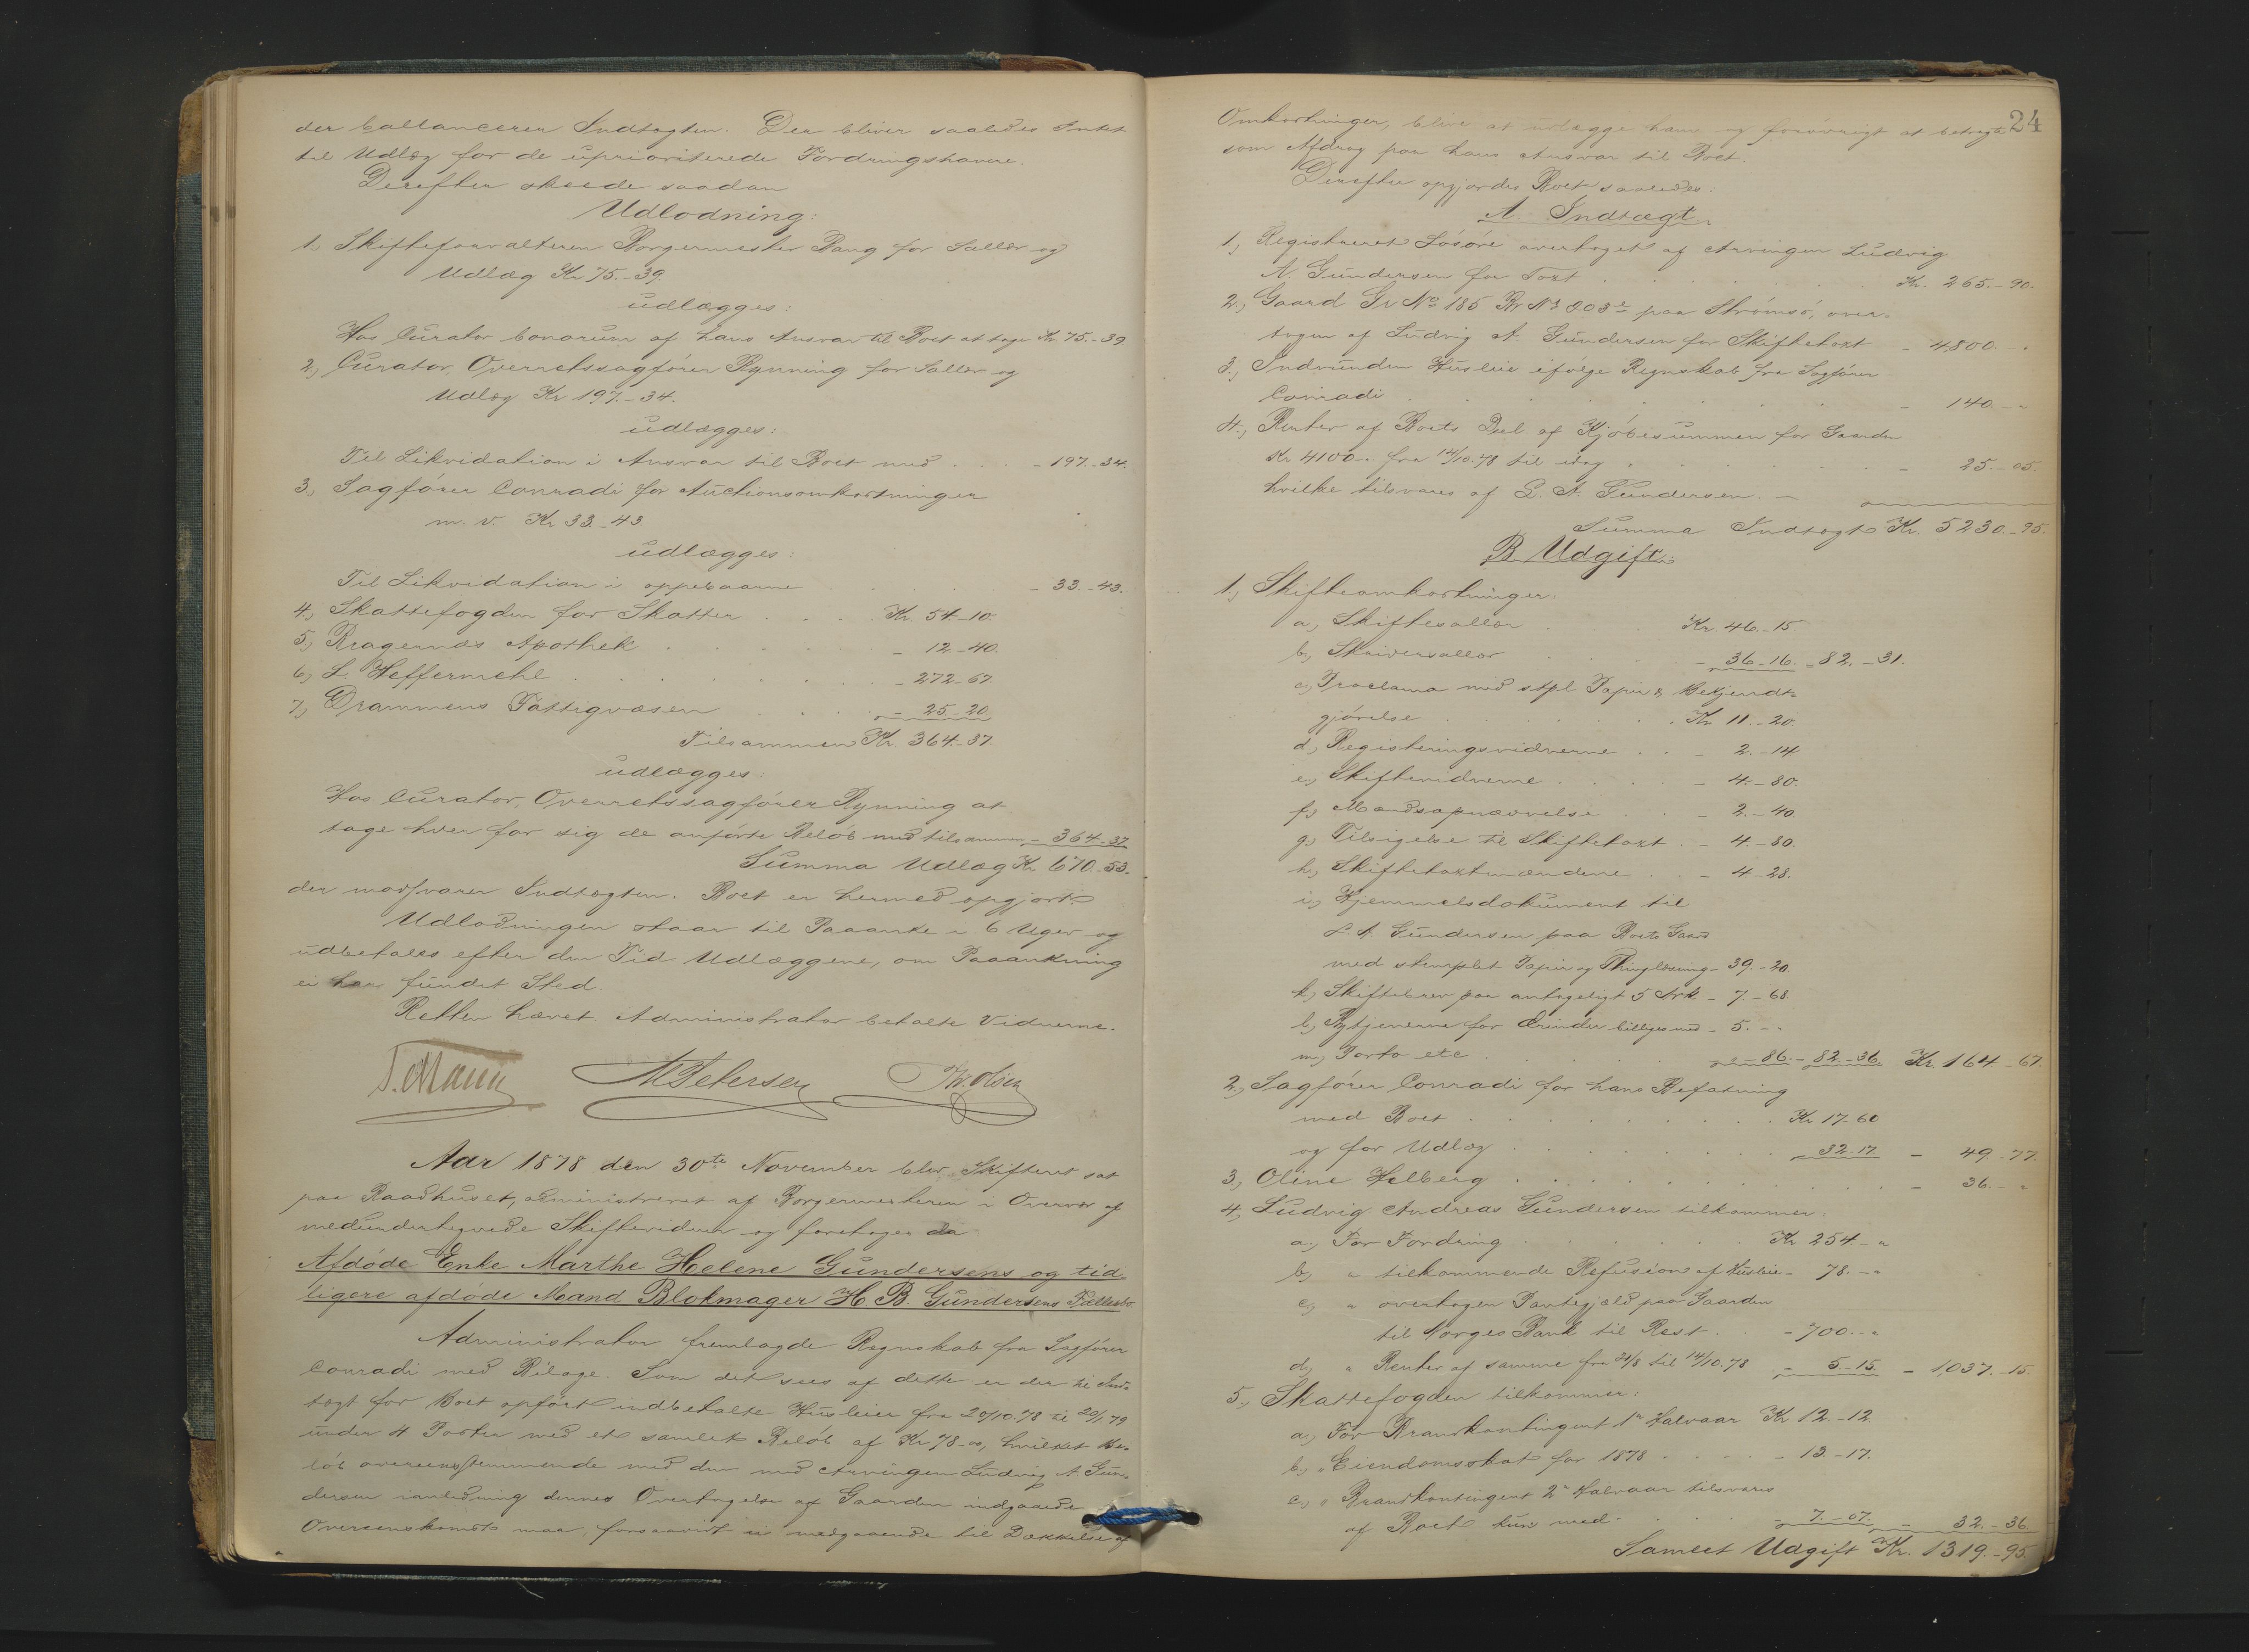 der ballancerer Indtægten. Der bliver saaledes Intet
til Udlæg for de uprioriterede Fordringshavere.
Derefter skeede saadan
Udlodning:
1, Skifteforvalteren Borgermester Bang for Sallær og
Udlæg Kr 75.-39.
udlægges:
Hos Curator bonorum af hans Ansvar til Boet at tage Kr 75.-39
2, Curator, Overretssagfører Rynning for Sallær og
Udlæg Kr 197.-34.
udlægges:
Til Likvidation i Ansvar til Boet med . . . - 197.-34.
3, Sagfører Conradi for Auctionsomkostninger
m. v. Kr 33.-43
udlægges:
Til Likvidation i oppebaarne . . . - 33.-43.
4, Skattefogden for Skatter . . . Kr. 54.-10.
5, Bragernæs Apothek . . . - 12.-40.
6, L. Heffermehl . . . - 272.-67
7, Drammens Fattigvæsen . . . - 25.-20
Tilsammen Kr. 364.-37.
udlægges:
Hos Curator, Overretssagfører Rynning at
tage hver for sig de anførte Beløb med tilsammen - 364.-37
Summa Udlæg Kr 670.-53.
der modsvarer Indtægten. Boet er hermed opgjort.
Udlodningen staar til Paaanke i 6 Uger og
udbetales efter den Tid Udlæggene, om Paaankning
ei har fundet Sted.
Retten hævet. Administrator betalte Vidnerne.
M Petersen
Aar 1878 den 30te November blev Skifteret sat
paa Raadhuset, administreret af Borgermesteren i Overvær af
medundertegnede Skiftevidner og foretoges da
Afdøde Enke Marthe Helene Gundersens og tid-
ligere afdøde Mand Blokmager H. B. Gundersens Fællesbo
Administrator fremlagde Regnskab fra Sagfører
Conradi med Bilage. Som det sees af dette er der til Ind-
tægt for Boet opført indbetalte Husleier fra 20/10.78 til 20/1 79
under 4 Poster med et samlet Beløb af Kr 78-", hvilket Be-
løb overeensstemmende med den med Arvingen Ludvig A. Gun-
dersen ianledning dennes Overtagelse af Gaarden indgaaede
Overenskomst maa, forsaavidt ei medgaaende til Dækkelse af
24
Omkostninger, blive at udlægge ham og forøvrigt at betragte
som Afdrag paa hans Ansvar til Boet.
Derefter opgjordes Boet saaledes:
A. Indtægt.
1, Registreret Løsøre overtaget af Arvingen Ludvig
A. Gundersen for Taxt . . . Kr. 265.-90.
2, Gaard Gr No 185 Br No 203 paa Strømsø, over-
tagen af Ludvig A. Gundersen for Skiftetaxt - 4,800.-"
3, Indvunden Husleie ifølge Regnskab fra Sagfører
Conradi . . . - 140.-"
4, Renter af Boets Deel af Kjøbesummen for Gaarden
Kr 4100-" fra 14/10.78 til idag . . . - 25.-05.
hvilke tilsvares af L. A. Gundersen. -
Summa Indtægt Kr. 5230.-95.
B. Udgift.
1, Skifteomkostninger:
a, Skiftesallær . . . Kr. 46.-15
b, Skriversallær . . . - 36-16. - 82.-31.
c, Proclama med stpl Papir & Bekjendt-
gjørelse . . . Kr. 11.-20.
d, Registreringsvidnerne . . - 2.-14
e, Skiftevidnerne . . . - 4.-80.
f, Mandsopnævnelse . . - 2.-40.
g, Tilsigelse til Skiftetaxt . - 4.-80.
h, Skiftetaxtmændene . . - 4-28.
i, Hjemmelsdokument til
L. A. Gundersen paa Boets Gaard
med stemplet Papir og Thinglæsning - 39.-20.
k, Skiftebrev paa antageligt 5 Ark - 7.-68.
l, Bytjenerne for Ærinder billiges med - 5.-"
m, Porto etc . . . - "-86. - 82.-36. Kr. 164.-67.
2, Sagfører Conradi for hans Befatning
med Boet . . . Kr 17-60
og for Udlæg . . . 32-17 - 49.-77.
3, Oline Helberg . . . - 36.-"
4, Ludvig Andreas Gundersen tilkommer:
a, For Fordring . . . Kr 254-"
b, " tilkommende Refusion af Husleie - 78.-"
c, " overtagen Pantegjæld paa Gaarden
til Norges Bank til Rest . . - 700.-"
d, " Renter af samme fra 21/8 til 14/10.78 - 5-15. - 1,037.-15.
5, Skattefogden tilkommer:
a, For Brandkontingent 1ste Halvaar Kr 12.-12.
b, " Eiendomsskat for 1878 . . . - 13-17.
c, " Brandkontingent 2det Halvaar tilsvares
af Boet kun med . . . - 7.-07. - 32.-36.
Samlet Udgift Kr. 1319.-95.